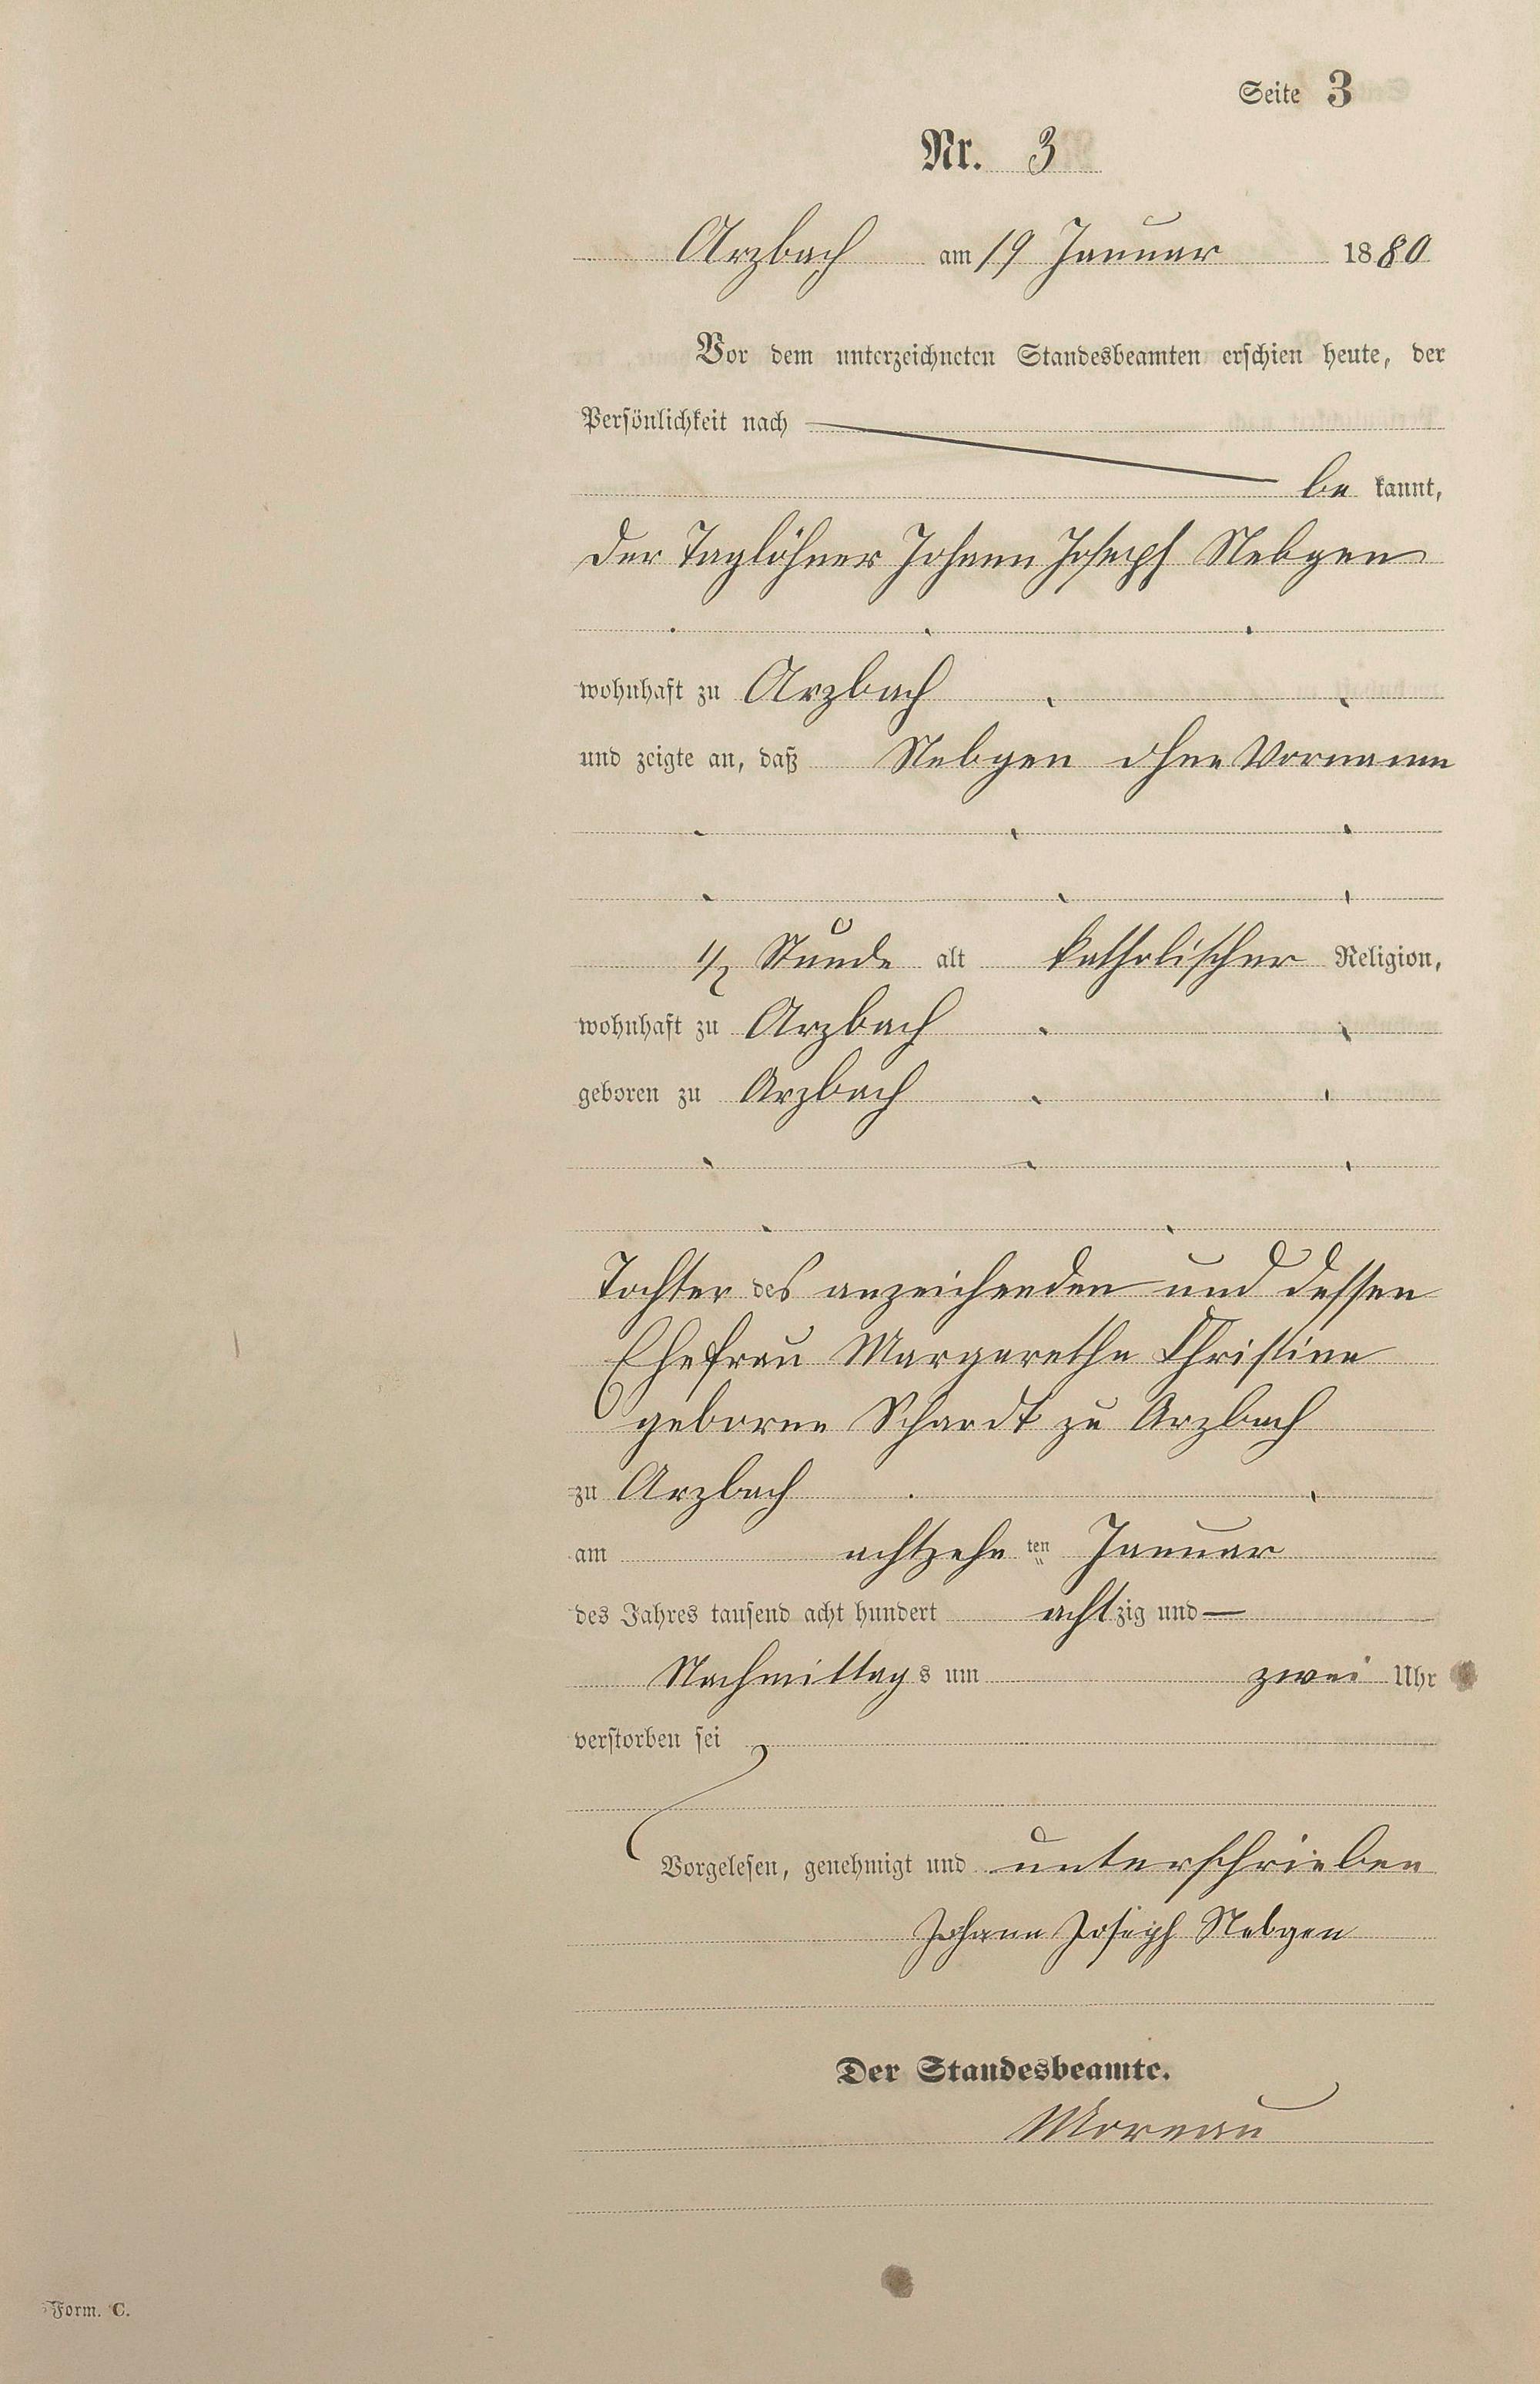 Seite 3
Nr. 3
Arzbach am 19 Januar 1880
Vor dem unterzeichneten Standesbeamten erschien heute, der
Persönlichkeit nach
be kannt,
der Taglöhner Johann Joseph Nebgen
wohnhaft zu Arzbach
und zeigte an, daß Nebgen ohne Vornamen
1/2 Stunde alt katholischer Religion,
wohnhaft zu Arzbach
geboren zu Arzbach
Tochter des anzeichenden und dessen
Ehefrau Margarethe Christine
geborne Schardt zu Arzbach
zu Arzbach
am achtzehn ten Januar
des Jahres tausend acht hundert achtzig und —
Nachmittags um zwei Uhr
verstorben sei
Vorgelesen, genehmigt und unterschrieben
Johann Joseph Nebgen
Der Standesbeamte.
Moreau
Form. C.